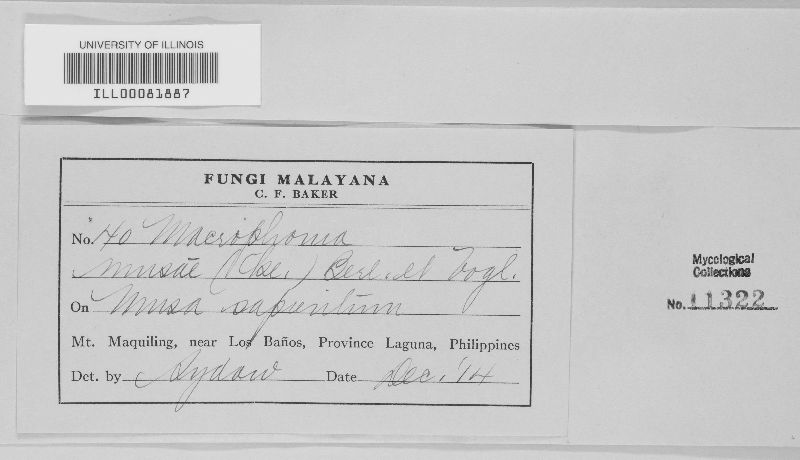 UNIVERSITY OF ILLINOIS
ILL00081887
FUNGI MALAYANA
C. F. BAKER
No. 40 Macrophoma
musae (Cke.) Berl. et Vogl.
On Musa sapientum
Mt. Maquiling, near Los Baños, Province Laguna, Philippines
Det. by Sydow Date Dec. '14
Mycological
Collections
No. 11322